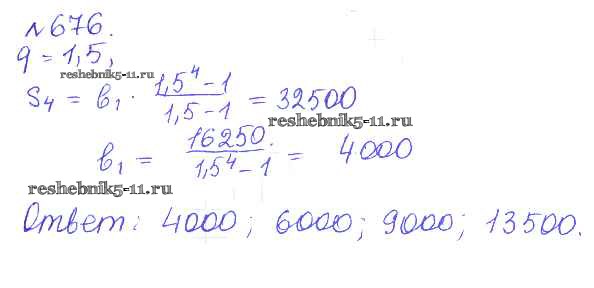 №676.
q = 1,5,
reshebnik5-11.ru
S₄ = b₁ · (1,5⁴ - 1)/(1,5 - 1) = 32500
reshebnik5-11.ru
b₁ = 16250./(1,5⁴ - 1) = 4000
reshebnik5-11.ru
Ответ: 4000; 6000; 9000; 13500.